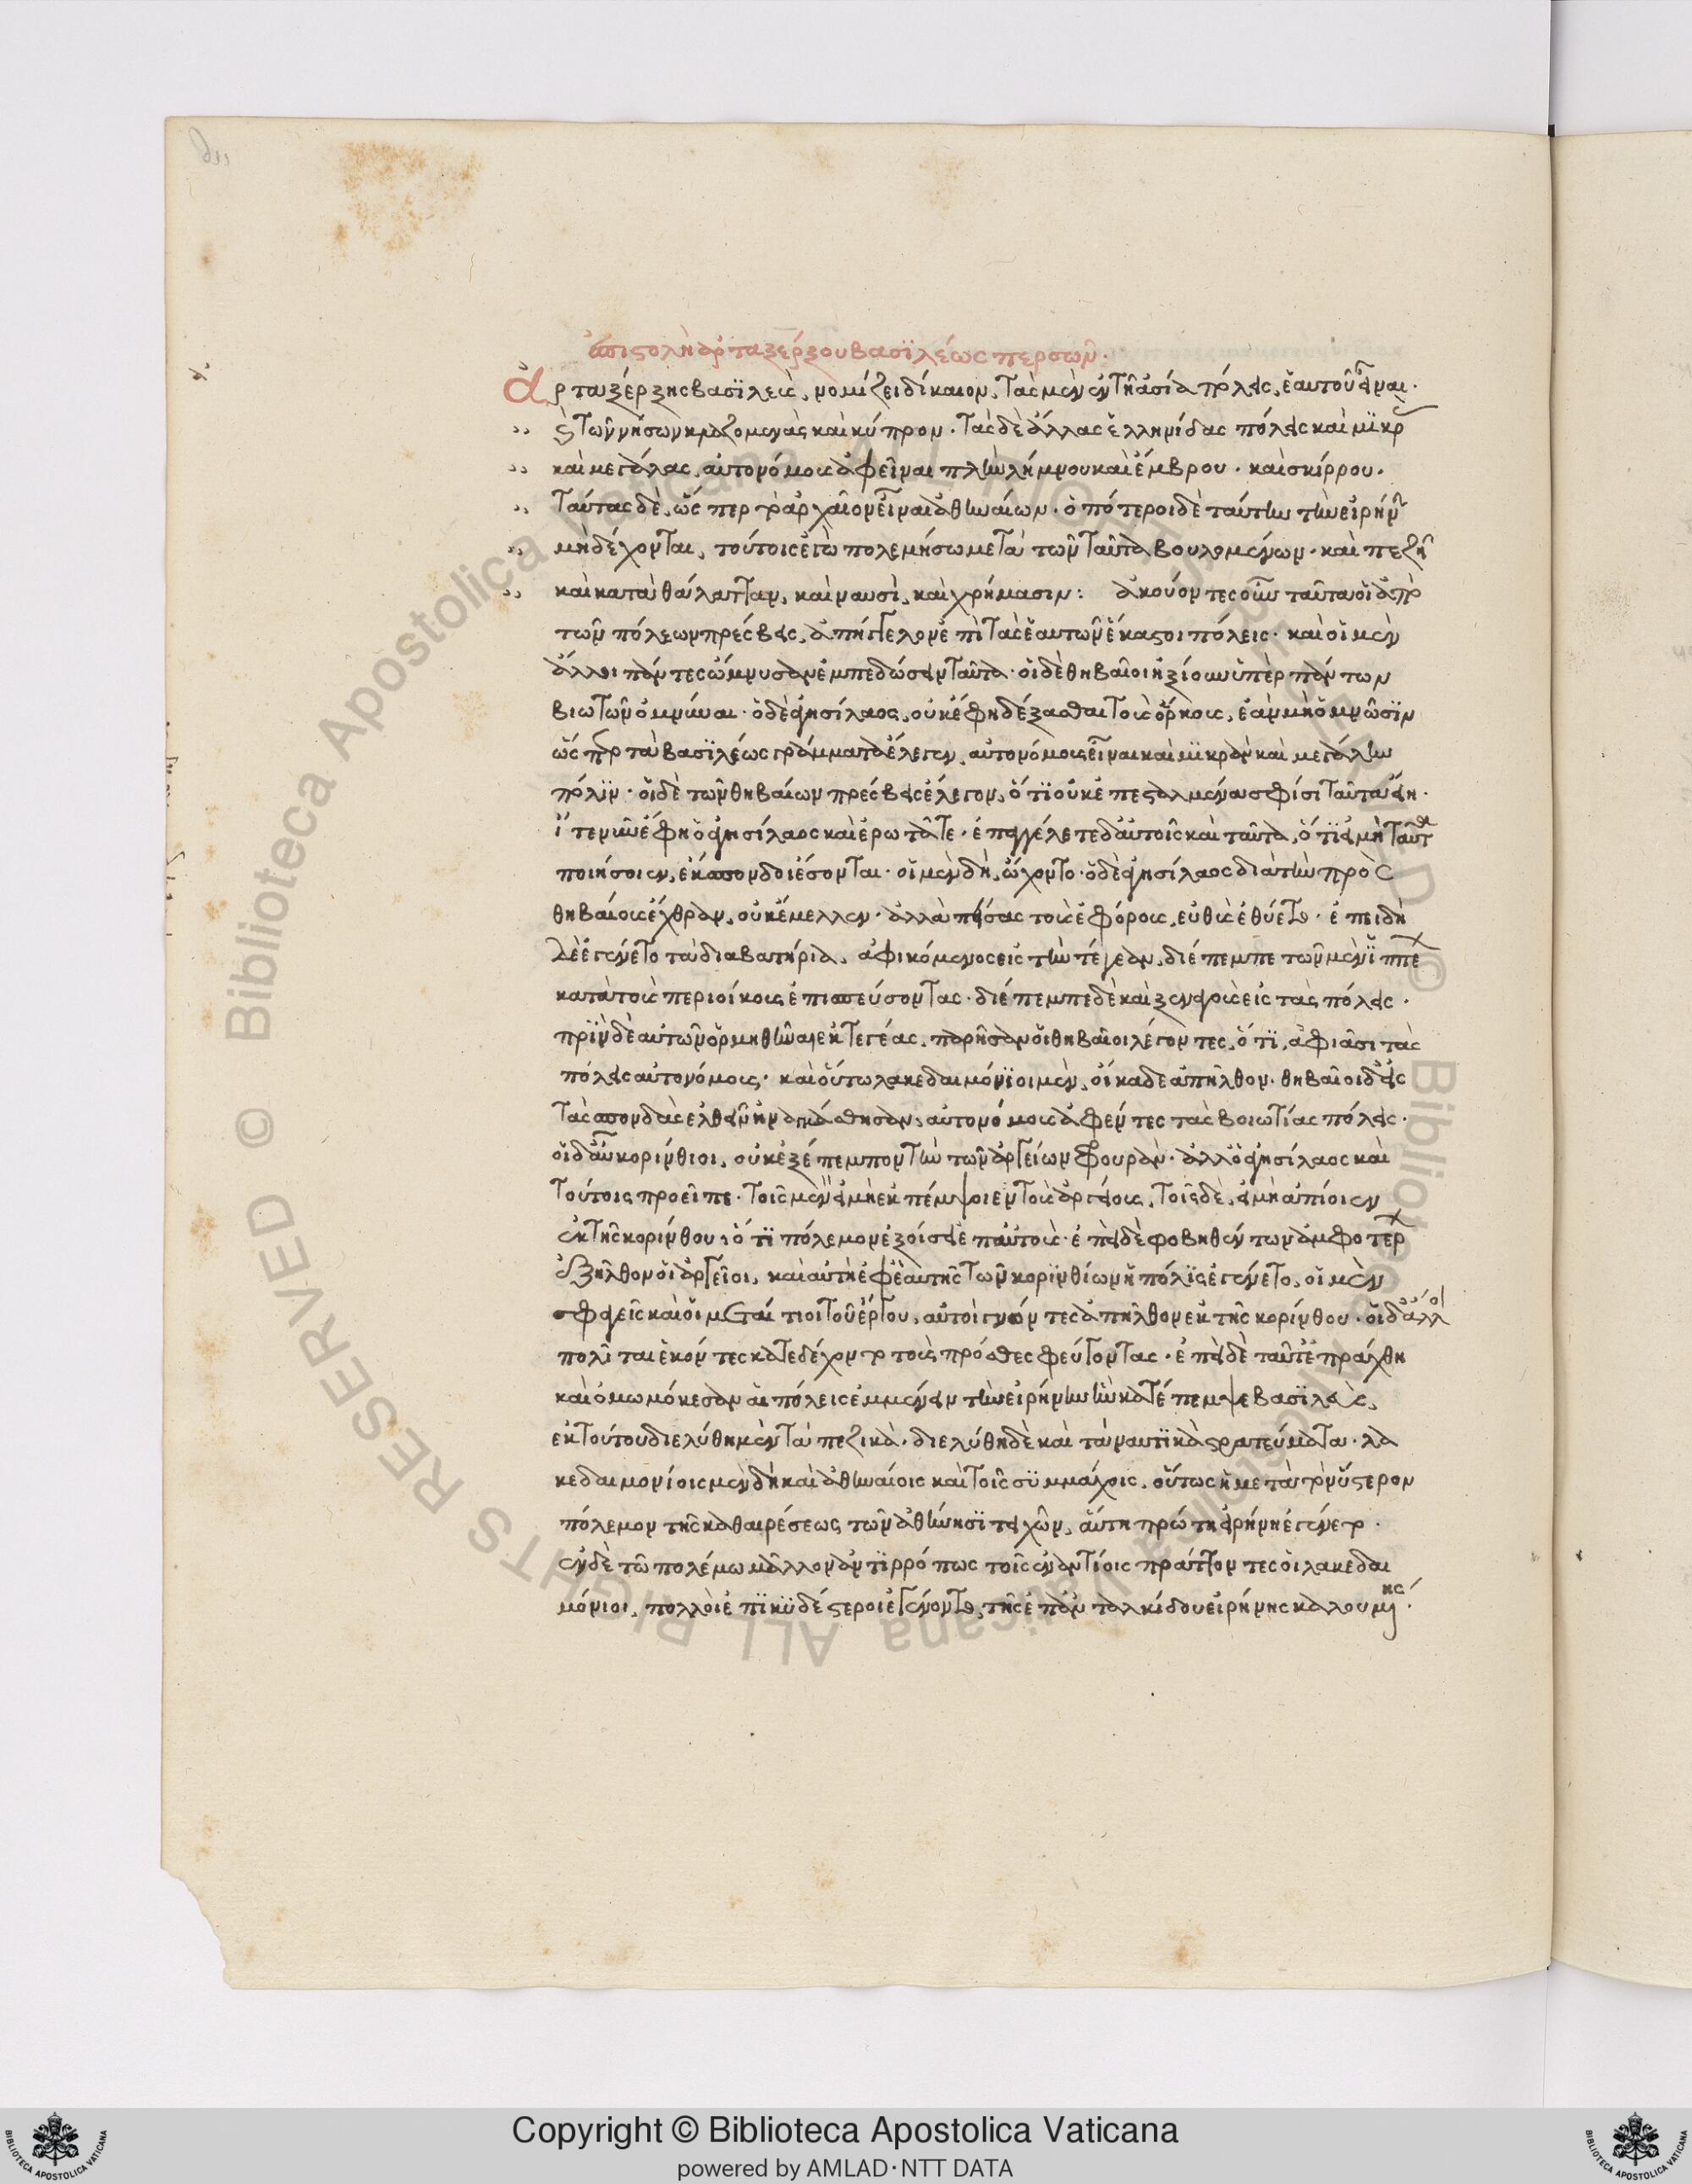 ἐπιστολὴ ἀρταξέρξου βασϊλέως περσῶν·
Ἀρταξέρξης βασϊλεὺς, νομίζει δίκαιον, τὰς μὲν ἐν τῆ ἀσία πόλεις, ἑαυτοῦ εἶναι·
καὶ τῶν νήσων κλαζομενὰς καὶ κύπρον· τὰς δὲ ἄλλας ἑλληνίδας πόλεις καὶ μϊκρὰς
καὶ μεγάλας, αὐτονόμους ἀφεῖναι πλὴν λήμνου καὶ ἔμβρου· καὶ σκίρρου·
ταύτας δὲ, ὥς περ τὸ ἀρχαῖον εἶναι ἀθηναίων· ὁπότεροι δὲ ταύτην τὴν εἰρήνην
μὴ δέχονται, τούτοις ἐγὼ πολεμήσω μετὰ τῶν ταῦτα βουλομένων· καὶ πεζῆ
καὶ κατὰ θάλατταν, καὶ ναυσὶ, καὶ χρήμασιν: ἀκούοντες οὖν ταῦτα οἱ ἀπὸ
τῶν πόλεων πρέσβεις, ἀπήγγελον ἐπὶ τὰς ἑαυτῶν ἕκαστοι πόλεις· καὶ οἱ μὲν
ἄλλοι πάντες ὤμνυσαν ἐμπεδώσειν ταῦτα· οἱ δὲ θηβαῖοι ἠξίουν ὑπὲρ πάντων
βιωτῶν ὀμνύναι· ὁ δὲ ἀγησίλαος, οὐκ ἔφη δέξασθαι τοὺς ὅρκους, ἐὰν μὴ ὀμνῶσϊν
ὥς περ τὰ βασϊλέως γράμματα ἔλεγεν, αὐτονόμους εἶναι καὶ μϊκρὰν καὶ μεγάλην
πόλϊν· οἱ δὲ τῶν θηβαίων πρέσβεις ἔλεγον, ὅτϊ οὐκ ἐπεσταλμένα σφίσι ταῦτα εἴη·
ἴτε νῦν ἔφη ὁ ἀγησίλαος καὶ ἐρωτᾶτε· ἐπαγγέλετε δ᾽ αὐτοῖς καὶ ταῦτα, ὅτϊ εἰ μὴ ταῦτα
ποιήσοιεν, ἔκσπονδοι ἔσονται· οἱ μὲν δὴ, ὤχοντο· ὁ δὲ ἀγησίλαος διὰ τὴν πρὸς
θηβαίους ἔχθραν, οὐκ ἔμελλεν· ἀλλὰ πείσας τοὺς ἐφόρους, εὐθὺς ἐθύετο· ἐπειδὴ
δὲ ἐγένετο τὰ διαβατήρια, ἀφικόμενος εἰς τὴν τέγεαν, διέπεμπε τῶν μὲν ἱππέων
κατὰ τοὺς περιοίκους ἐπισπεύσοντας· διέπεμπε δὲ καὶ ξεναγοὺς εἰς τὰς πόλεις·
πρϊν δὲ αὐτῶν ὁρμηθῆναι ἐκ τεγέας, παρῆσαν οἱ θηβαῖοι λέγοντες, ὅτϊ, ἀφιᾶσι τὰς
πόλεις αὐτονόμους· καὶ οὕτω λακεδαιμόνϊοι μὲν, οἴκαδε ἀπῆλθον· θηβαῖοι δ᾽ εἰς
τὰς σπονδὰς ἐλθεῖν ἠναγκάσθησαν, αὐτονόμους ἀφέντες τὰς βοιωτίας πόλεις·
οἱ δ᾽ αὖ κορίνθιοι, οὐκ ἐξέπεμπον τὴν τῶν ἀργείων φρουρὰν· ἀλλ᾽ ὁ ἀγησίλαος καὶ
τούτοις προεῖπε· τοῖς μὲν εἰ μὴ ἐκπέμψοιεν τοὺς ἀργείους, τοῖς δὲ, εἰ μὴ ἀπίοιεν
ἐκ τῆς κορίνθου, ὅτϊ πόλεμον ἐξοίσει ἐπ᾽ αὐτοὺς· ἐπεὶ δὲ φοβηθέντων ἀμφοτέρων
ἐξῆλθον οἱ ἀργεῖοι, καὶ αὐτὴ ἐφ᾽ ἑαυτῆς τῶν κορϊνθίων ἡ πόλϊς ἐγένετο, οἱ μὲν
σφαγεῖς καὶ οἱ μεταίτιοι τοῦ ἔργου, αὐτοὶ γνόντες ἀπῆλθον ἐκ τῆς κορίνθου· οἱ δ᾽ ἄλλοι
πολῖται ἑκόντες κατεδέχοντο τοὺς πρόσθεν φεύγοντας· ἐπεὶ δὲ ταῦτ᾽ ἐπράχθη
καὶ ὀμωμόκεσαν αἱ πόλεις ἐμμένειν τὴν εἰρήνην ἣν κατέπεμψε βασϊλεὺς,
ἐκ τούτου διελύθη μὲν τὰ πεζικὰ· διελύθη δὲ καὶ τὰ ναυτϊκὰ στρατεύματα· λα
κεδαιμονίοις μὲν δὴ καὶ ἀθηναίοις καὶ τοῖς συμμάχοις, οὕτως ἡ μετὰ τὸν ὕστερον
πόλεμον τῆς καθαιρέσεως τῶν ἀθήνησϊ τειχῶν, αὕτη πρώτη εἰρήνη ἐγένετο·
ἐν δὲ τῶ πολέμω μᾶλλον ἀντϊρρόπως τοῖς ἐναντίοις πράττοντες οἱ λακεδαι
μόνιοι, πολλοὶ ἐπϊκυδέστεροι ἐγένοντο, τῆς ἐπ᾽ ἀνταλκίδου εἰρήνης καλουμένης·
Copyright © Biblioteca Apostolica Vaticana
powered by AMLAD·NTT DATA